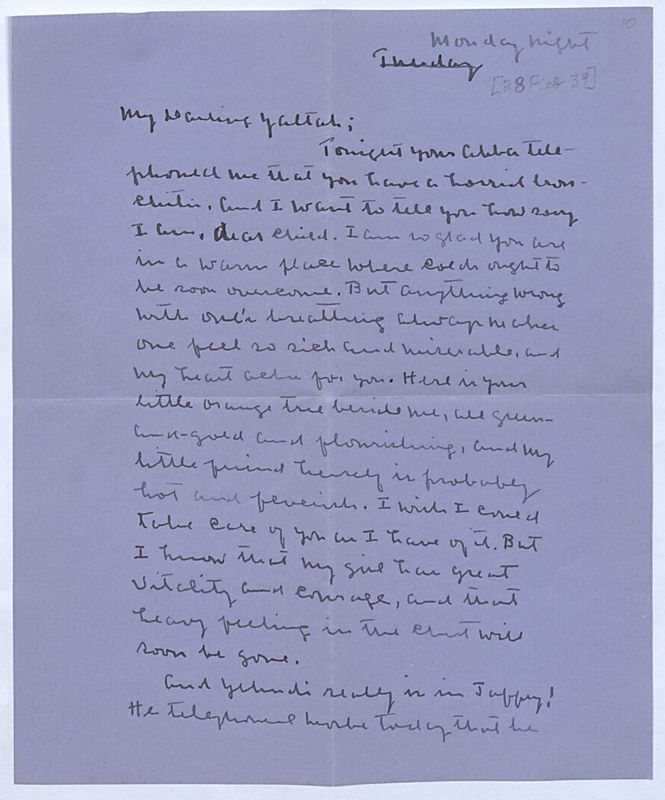 10
Monday night
Tuesday
[28 Feb 39]
My Darling Yaltah;
Tonight your Abba tele-
phoned me that you have a horrid bron-
chitis, and I want to tell you how sorry
I am, dear child. I am so glad you are
in a warm place where colds ought to
be soon overcome. But anything wrong
with one's breathing always makes
one feel so sick and miserable, and
my heart aches for you. Here is your
little orange tree beside me, all green-
and-gold and flourishing, and my
little friend herself is probably
hot and feverish. I wish I could
take care of you as I have of it. But
I know that my girl has great
vitality and courage, and that
heavy feeling in the chest will
soon be gone.
And Yehudi really is in
He telephoned today that he